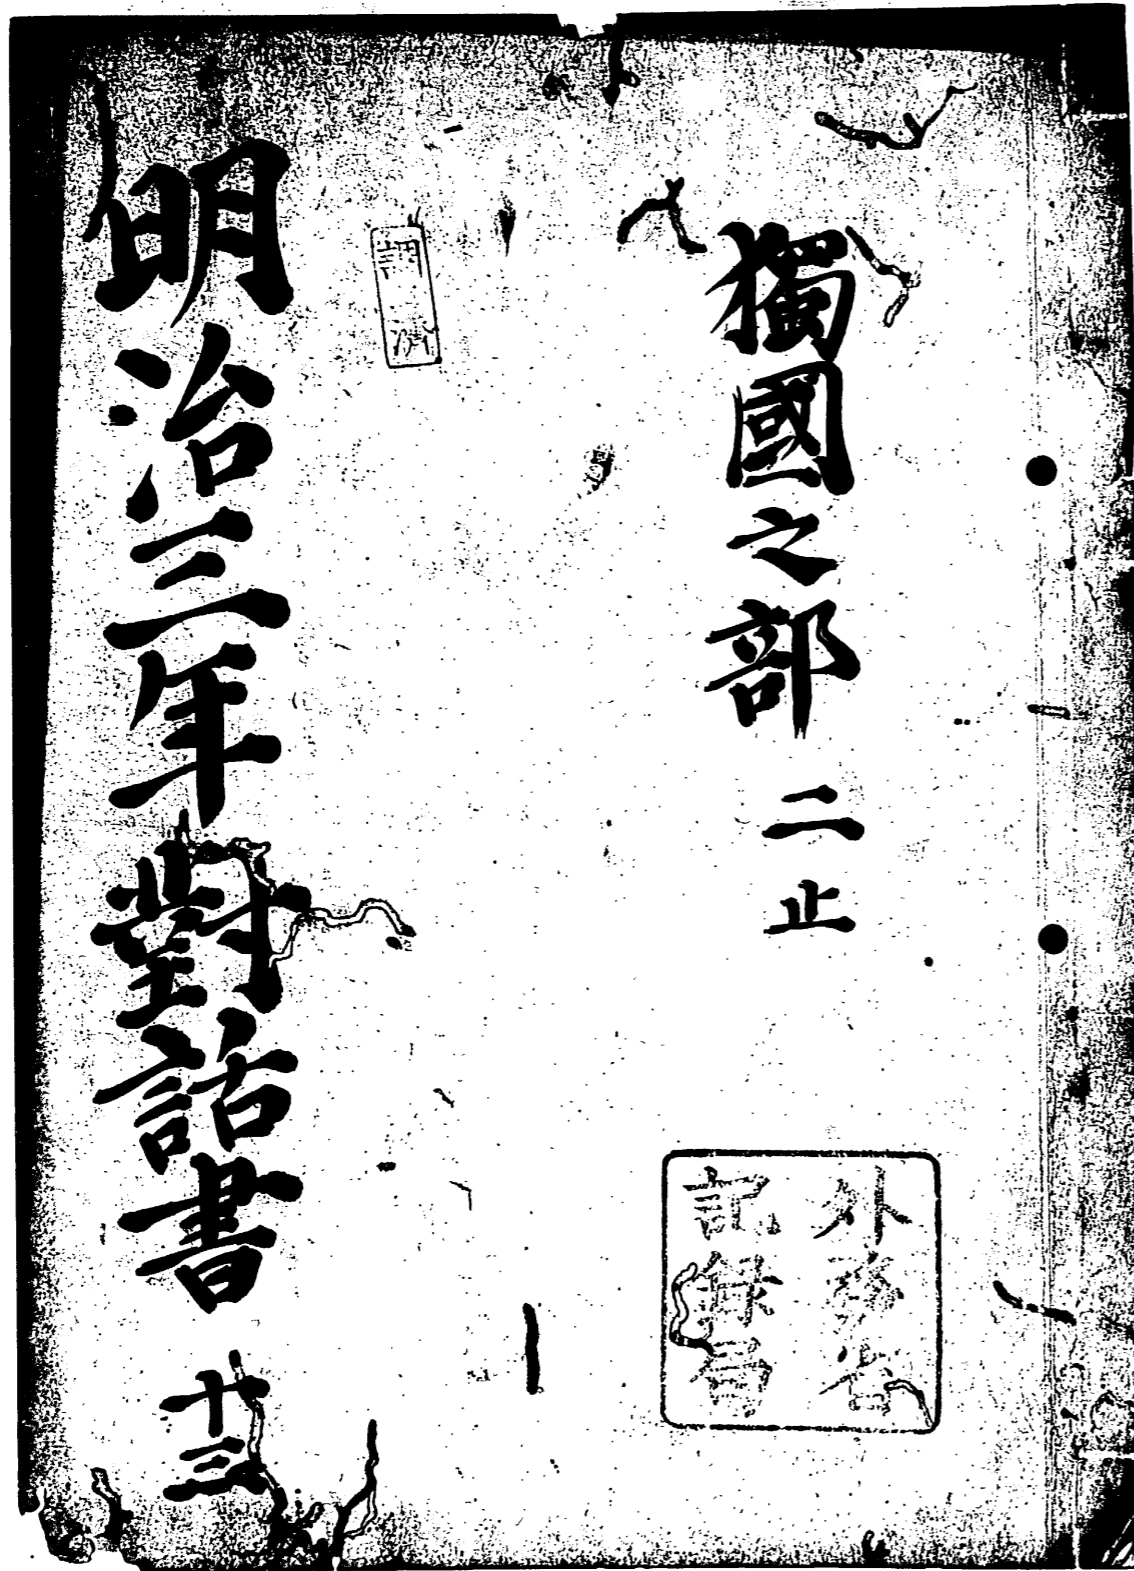 獨國之部 二止
外務省
記録局
明治三年對話書 十三